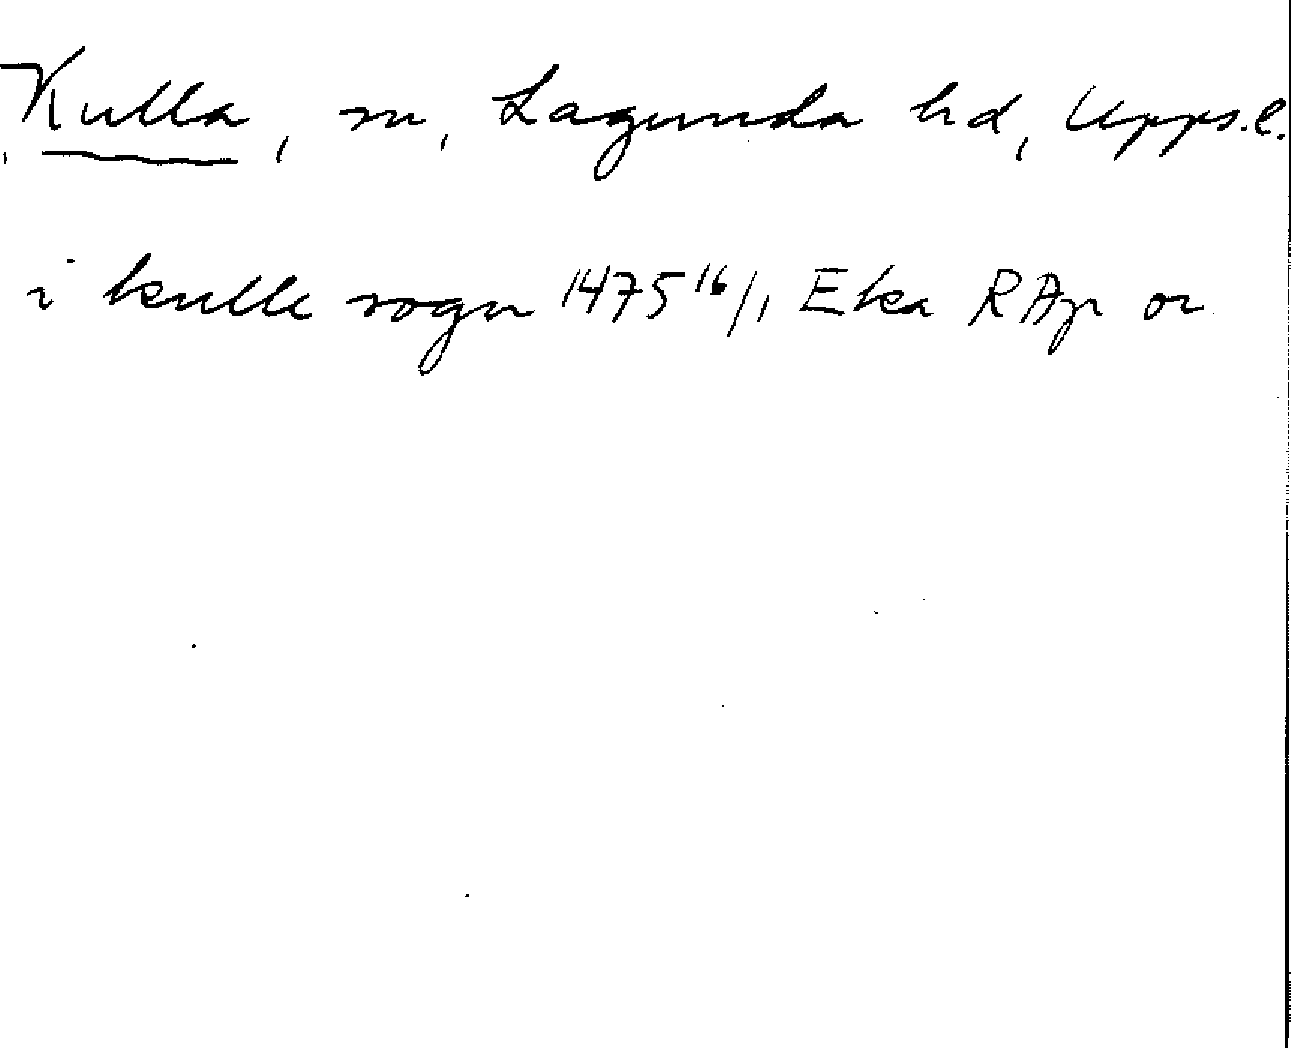 Kulla, sn, Lagunda hd, Upps.l.
i kulle sogn 1475 16/1 Eka RAp or